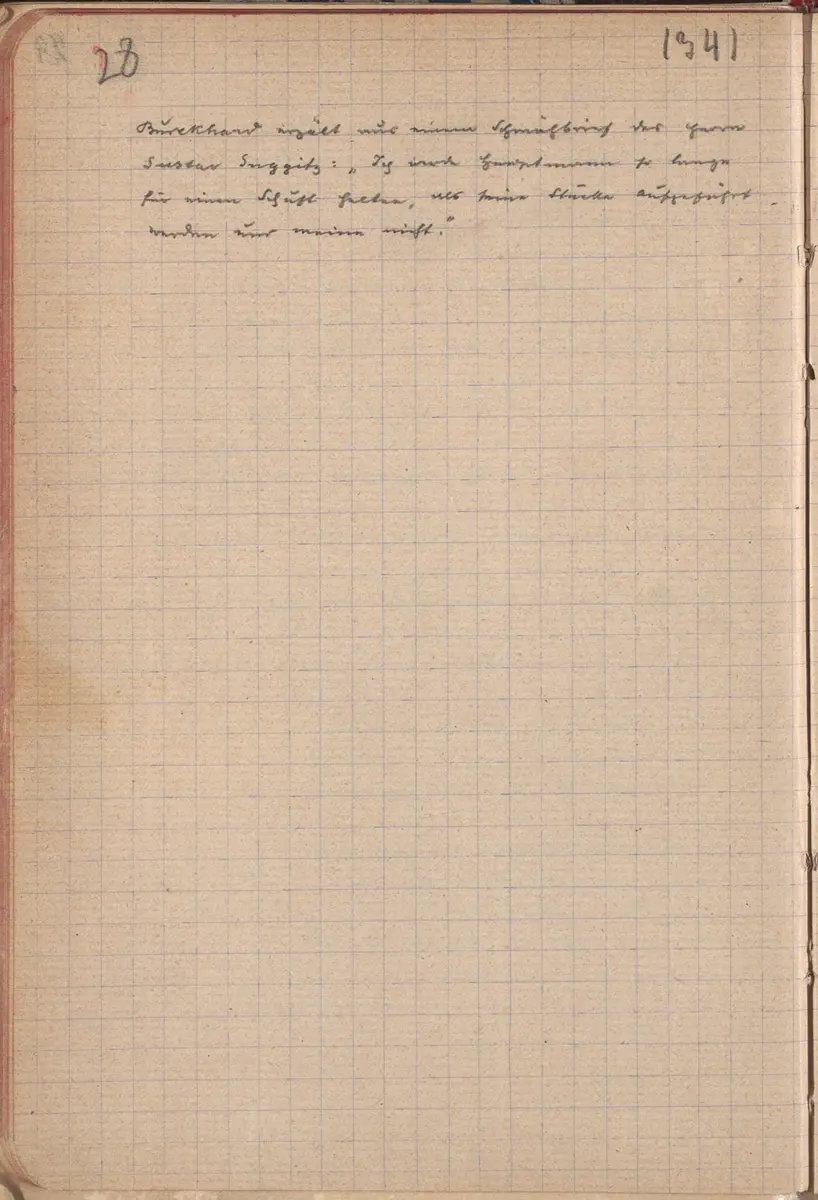 28
1341
Burckhard erzält aus einem Schmähbrief des Herrn
Gustav : „Ich werde Hauptmann so lange
für einen Schuft halten, als seine Stücke aufgeführt
werden und meine nicht.“